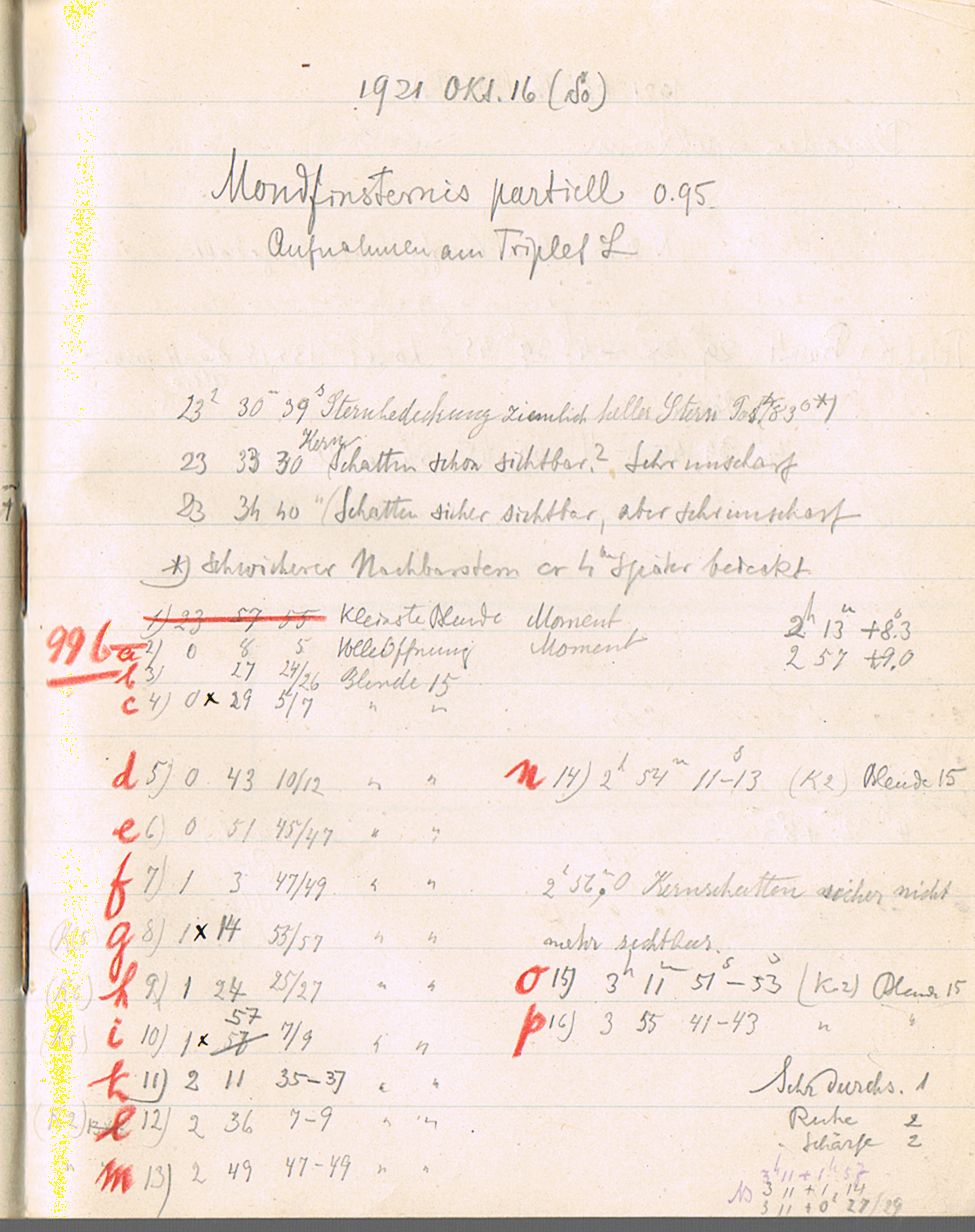 1921 Okt. 16 (So)
Mondfinsternis partiell 0.95.
Aufnahmen am Triplet L
23h 30m 39s Sternbedeckung ziemlich heller Stern Pos. 830 *)
Kern
23 33 30 (Schatten schon sichtbar? Sehr unscharf
23 34 40 " (Schatten sicher sichtbar, aber sehr unscharf
*) Schwächerer Nachbarstern cr 4m später bedeckt
1) 23 57 55 Kleinste Blende Moment 2h 13m +8.3
996 a 2) 0 8 5 Volle Öffnung Moment 2 57 +9.0
b 3) 27 24/26 Blende 15
c 4) 0 x 29 5/7 " "
d 5) 0 43 10/12 " " n 14) 2h 54m 11-13s (K2) Blende 15
e 6) 0 51 45/47 " "
f 7) 1 3 47/49 " " 2h 56m,0 Kernschatten sicher nicht
g 8) 1 x 14 53/57 " " mehr sichtbar.
h 9) 1 24 25/27 " " o 15) 3h 11m 51s-53s (K2) Blende 15
57
i 10) 1 x 57 7/9 " " p 16) 3 55 41-43 " "
k 11) 2 11 35-37 " " Sehr durchs. 1
(K2) l 12) 2 36 7-9 " " Ruhe 2
Schärfe 2
m 13) 2 49 47-49 " "
3h 11 + 1h 57
3 11 + 1, 14
3 11 + 0, 27/29